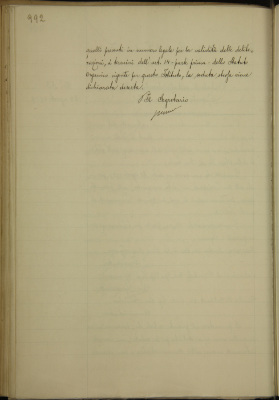 992
presenti in numero legale per la validità delle delibe-
razioni, a termini dell'art. 14 - parte prima - dello Statuto
organico vigente per questo Istituto, la seduta stessa viene
dichiarata deserta.
Il Segretario